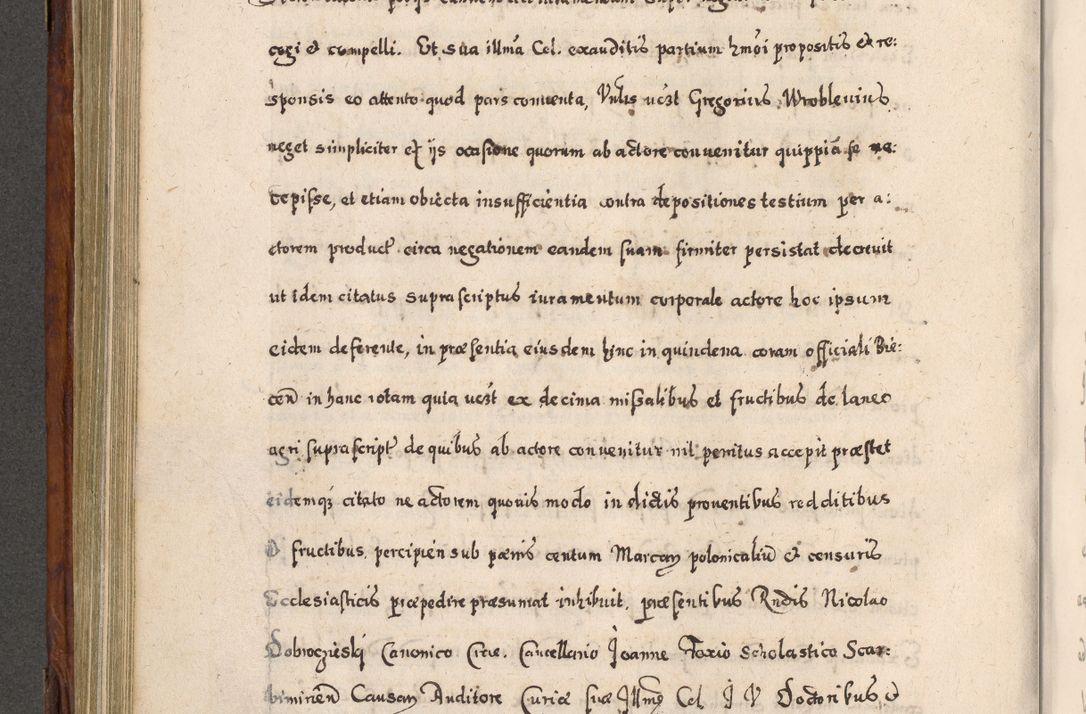 cogi et compelli. Et sua illma Cel. exauditis partium hmoi propositis et re:
sponsis eo attento quod pars conuenta, Vnlis uczt Gregorius Wrobleuius
neget simpliciter ex ijs ocasione quorum ab actore conuenitur quippiã se re:
cepisse, et etiam obiecta insufficientia contra depositiones testium per a:
ctorem product circa negationem eandem suam firmiter persistat decreuit
ut idem citatus suprascriptus iuramentum corporale actore hoc ipsum
eidem deferente, in præsentia eiusdem hinc in quindena coram officiali Bie:
cen in hanc rotam quia uczt ex decima missalibus et fructibus de laneo
agri suprascript de quibus ab actore conuenitur nil penitus accepit præstet
eidemq citato ne actorem quouis modo in dictis prouentibus redditibus
et fructibus percipien sub pænis centum Marcarum polonicaliu et censuris
Ecclesiasticis præpedire præsumat inhibuit, præsentibus Rndis Nicolao
Dobroczieski Canonico Crac. Cancellario Joanne Foxio Scholastico Scar:
bimirien Causarum Auditore Curiæ suæ Illmæ Cel J V Doctoribus et